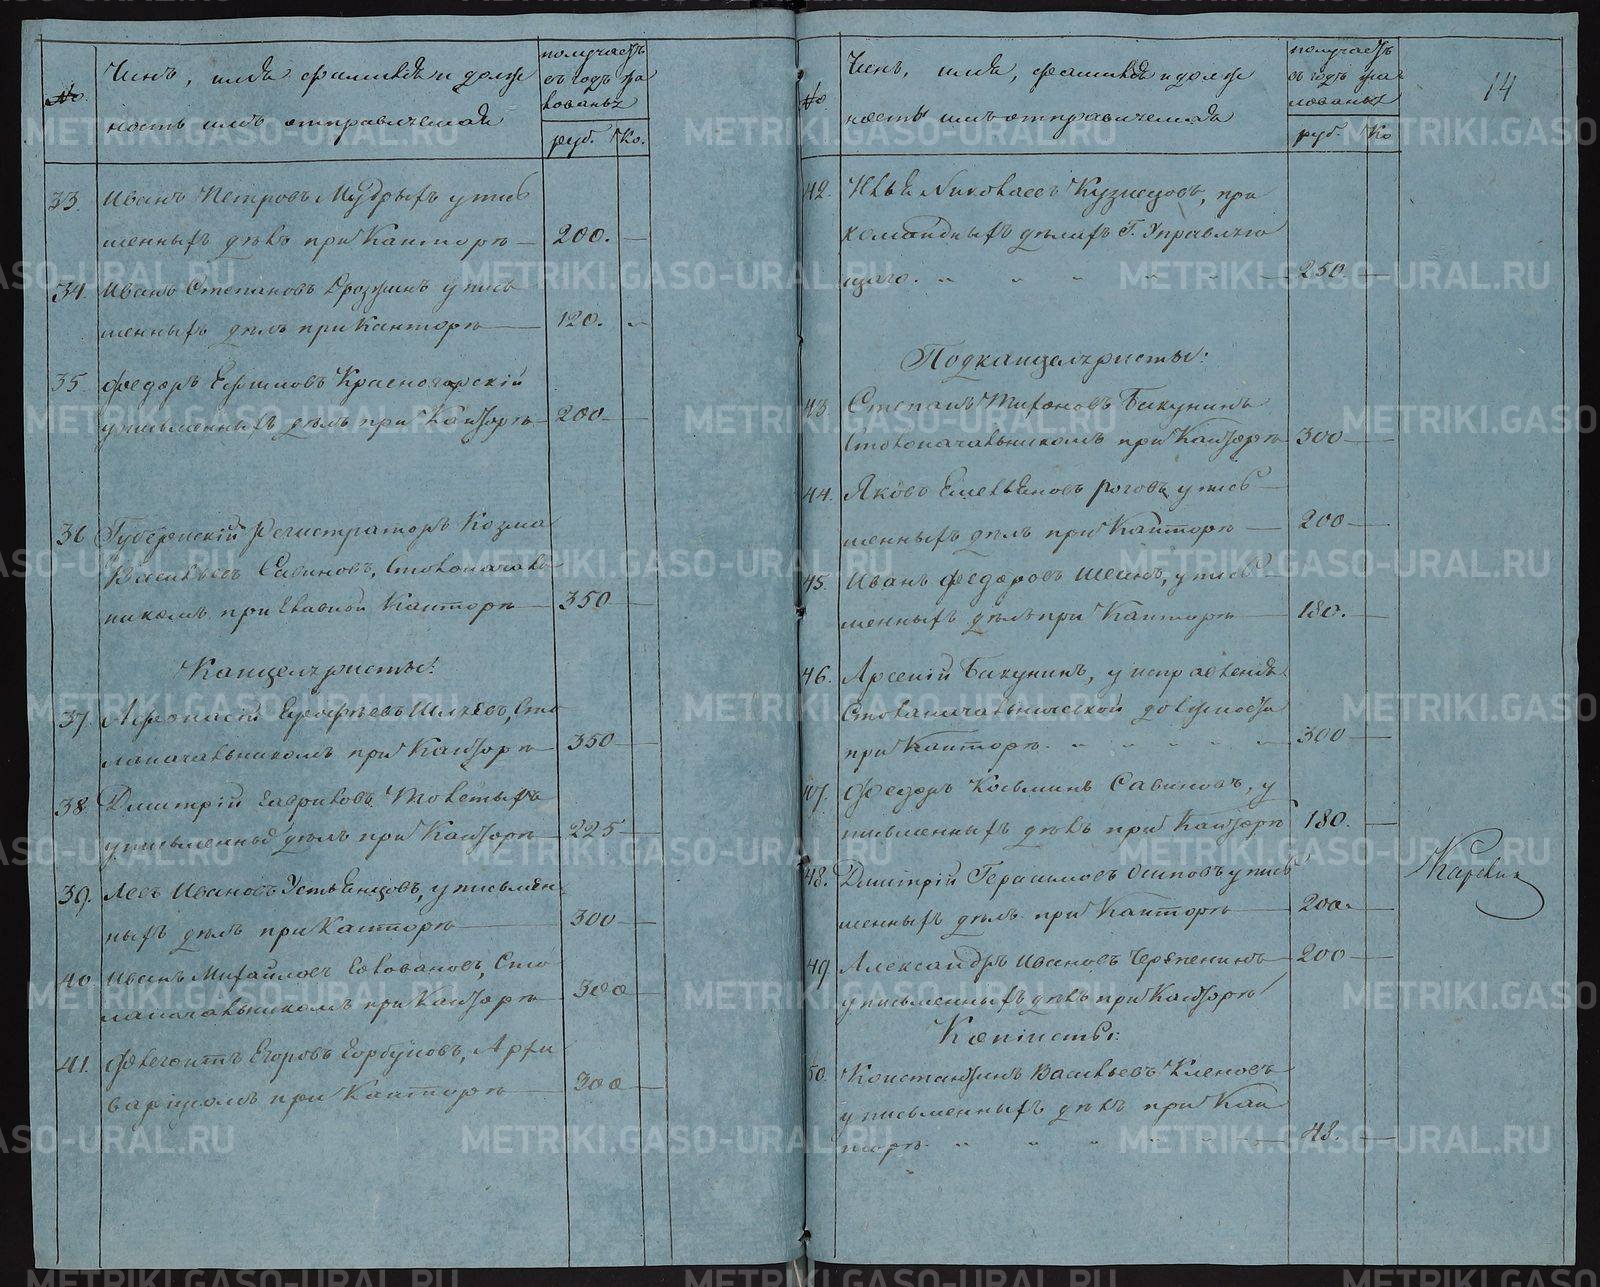 №
Чинъ, имя фамилія и долж
ность имъ отправляемая
получаетъ
въ годъ жа
лованья
руб. Ко.
33. Иванъ Петровъ Мудрыхъ у пись
менныхъ дѣлъ при Канторѣ — 200. —
34. Иванъ Степановъ Дрозжинъ у пись
менныхъ дѣлъ при Канторѣ — 120. —
35. Федоръ Ефимовъ Красногорскій
у письменныхъ дѣлъ при Канторѣ — 200 —
36 Губернскій Регистраторъ Козма
Васильевъ Савиновъ, Столоначаль
никомъ при Главной Канторѣ — 350 —
Канцеляристы:
37. Афонасій Ерофѣевъ Шляевъ, Сто
лоначальникомъ при Канторѣ — 350 —
38 Дмитрій Гавриловъ Толстыхъ
у письменныхъ дѣлъ при Канторѣ — 225 —
39. Левъ Ивановъ Устьянцовъ, у письмен
ныхъ дѣлъ при Канторѣ — 300 —
40. Иванъ Михайловъ Головановъ, Сто
лоначальникомъ при Канторѣ — 300 —
41. Флегонтъ Егоровъ Горбуновъ, Архи
варіусомъ при Канторѣ — 300 —
14
№
Чинъ, имя, фамилія и долж
ность имъ отправляемая
получаетъ
въ годъ жа
лованья
руб. Ко
42. Илья Николаевъ Кузнецовъ, при
командныхъ дѣлахъ Г. Управляю
щаго. — 250 —
Подканцеляристы:
43. Степанъ Бакунинъ
Столоначальникомъ при Канторѣ — 300 —
44. Яковъ Емельяновъ Роговъ, у пись
менныхъ дѣлъ при Канторѣ — 200 —
45. Иванъ Федоровъ Шеинъ, у пись
менныхъ дѣлъ при Канторѣ — 180. —
46. Арсеній Бакунинъ, у исправленія
Столоначальнической должности
при Канторѣ — 300 —
47. Федоръ Козьминъ Савиновъ, у
письменныхъ дѣлъ при Канторѣ 180. —
48. Дмитрій Герасимовъ Осиповъ у пись
менныхъ дѣлъ при Канторѣ — 200. —
49 Александръ Ивановъ Черепенинъ — 200 —
у письменныхъ дѣлъ при Канторѣ
Копіисты:
50. Константинъ Васильевъ Кленовъ
у письменныхъ дѣлъ при Кан
торѣ — 48. —
METRIKI.GASO-URAL.RU